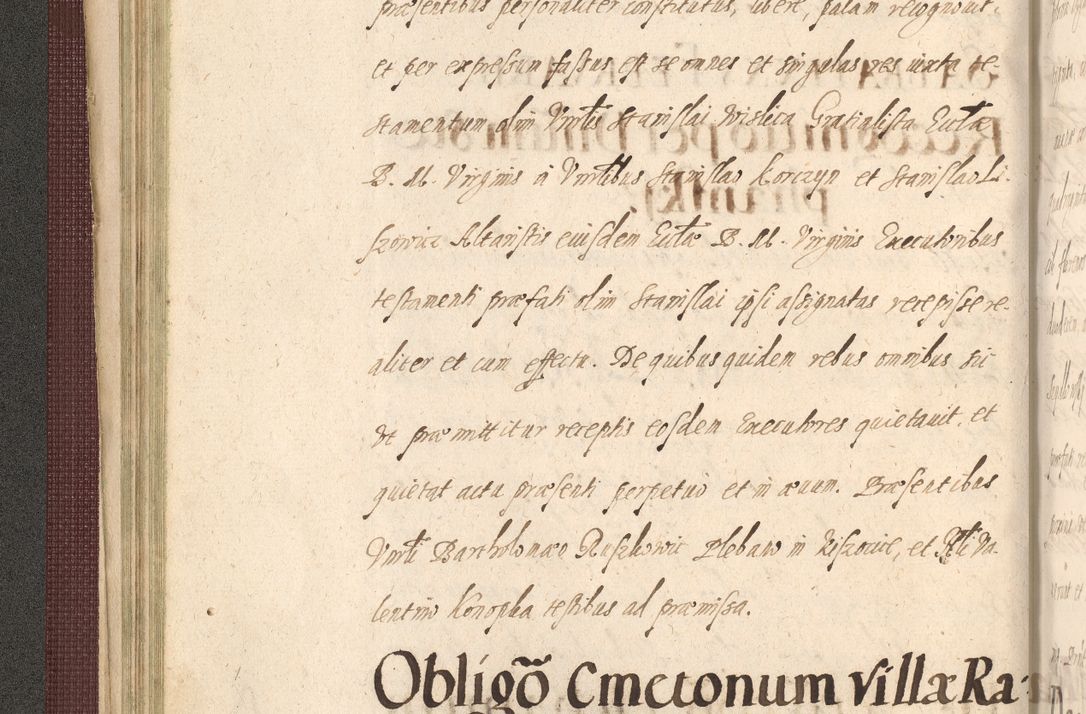 præsentibus personaliter constitutus, libere, palam recognovit,
et per expressum fassus est se omnes et singulas res iuxta te-
stamentum olim Vnrlis Stanislai Wislica Gratialista Eccltæ
B. M. Virginis à Vnrlibus Stanislao Korczyn et Stanislao Li-
szowicz Altaristis eiusdem Eccltæ B. M. Virginis Executoribus
testamenti præfati olim Stanislai ipsi assignatas recepisse re-
aliter et cum effectu. De quibus quidem rebus omnibus sic
vt præmittitur receptis eosdem Executores quietauit, et
quietat actu præsenti perpetuo et in æuum. Præsentibus
Vnrli Bartholomæo Ruszkowic Plebano in Liszovic, et Va-
lentino Konopka testibus ad præmissa.
Obligõ Cmetonum villæ Ra-